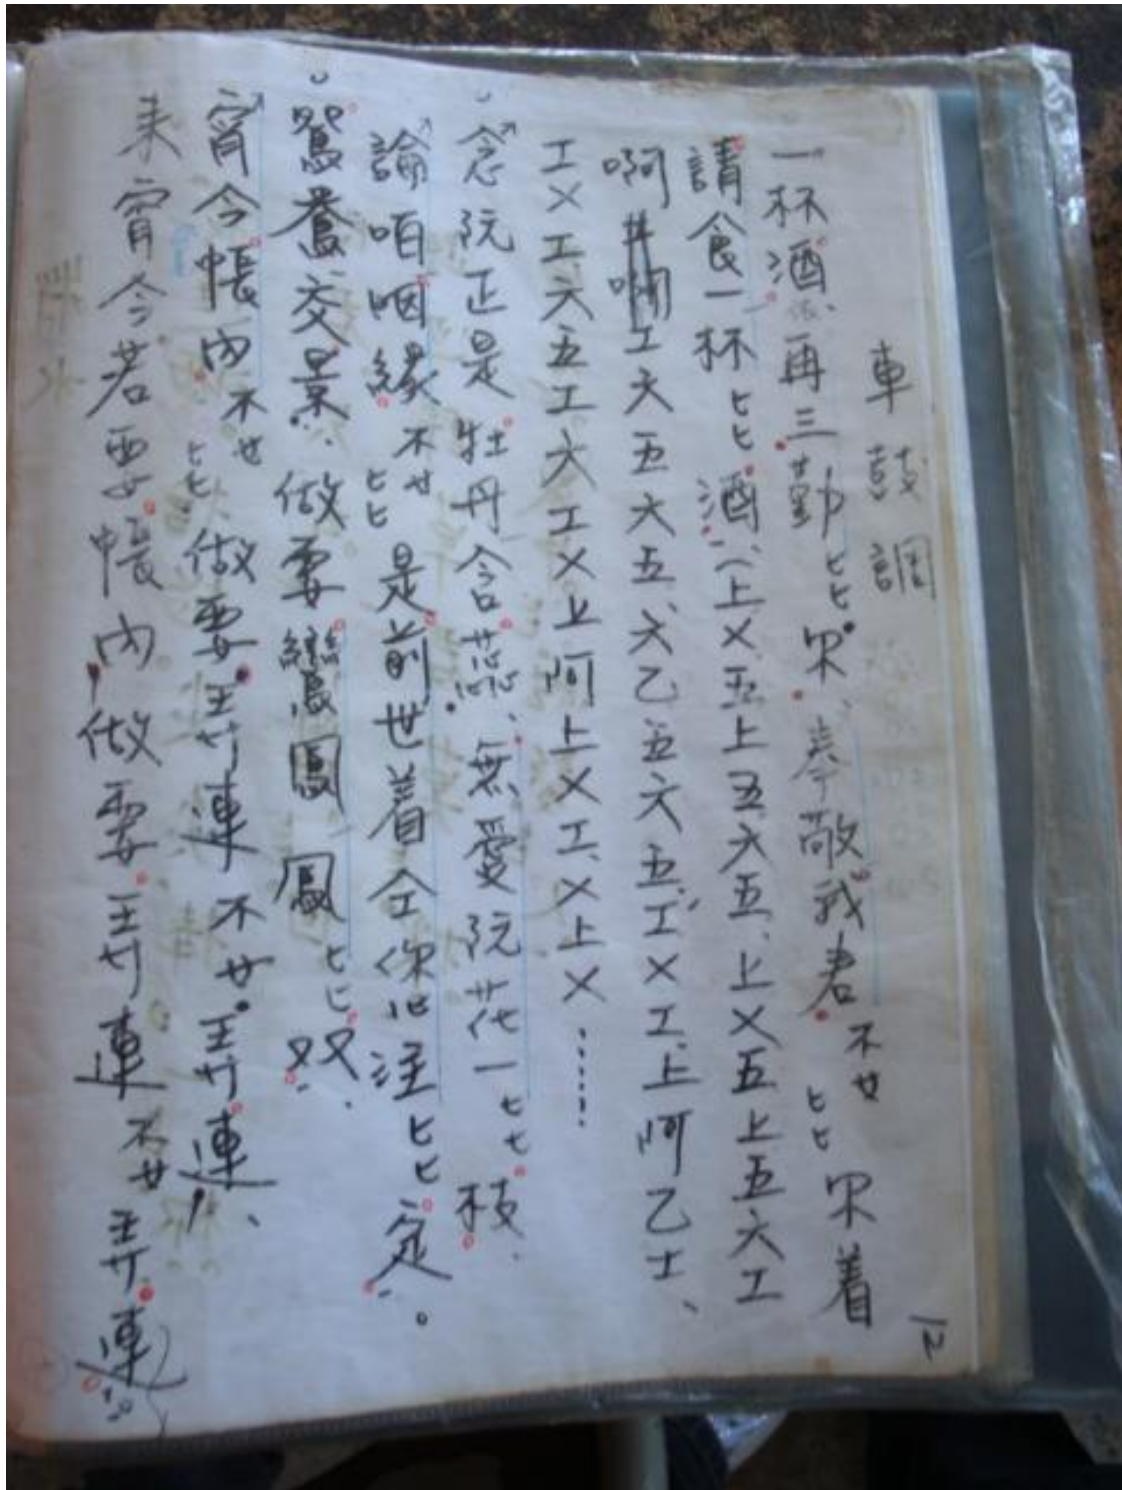 車鼓調
一杯酒再三勸匕匕 奉敬我君不女匕匕 着
請食一杯匕匕酒(上乂五上五六五、上乂五上五六工
啊 工六五六五、六乙五六五、工乂工、上啊乙士、
工乂工六五工六工乂上啊上乂工、乂上乂……
念阮正是牡丹含蕊、無愛阮花一匕匕枝、
論咱姻緣不女匕匕是前世着仝你註匕匕定。
鴛鴦交景、做要鸞鳳 鳳匕匕双、
宵今帳內不女匕匕做要弄連不女弄連、
来宵今若要帳內做要弄連不女弄連
12